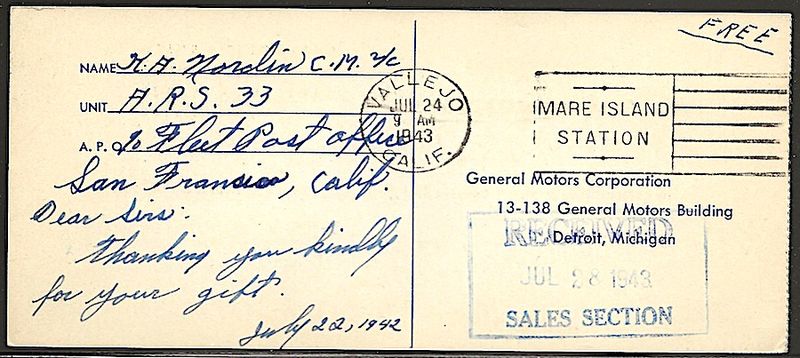 NAME K.A. Nordin C.M. 2/c
UNIT A.R.S. 33
A.P.O. % Fleet Post office
San Francisco, Calif.
Dear Sirs:
thanking you kindly
for your gift.
July 22, 1942
FREE
VALLEJO
JUL 24
9 AM
1943
CALIF.
MARE ISLAND
STATION
General Motors Corporation
13-138 General Motors Building
Detroit, Michigan
RECEIVED
JUL 28 1943
SALES SECTION